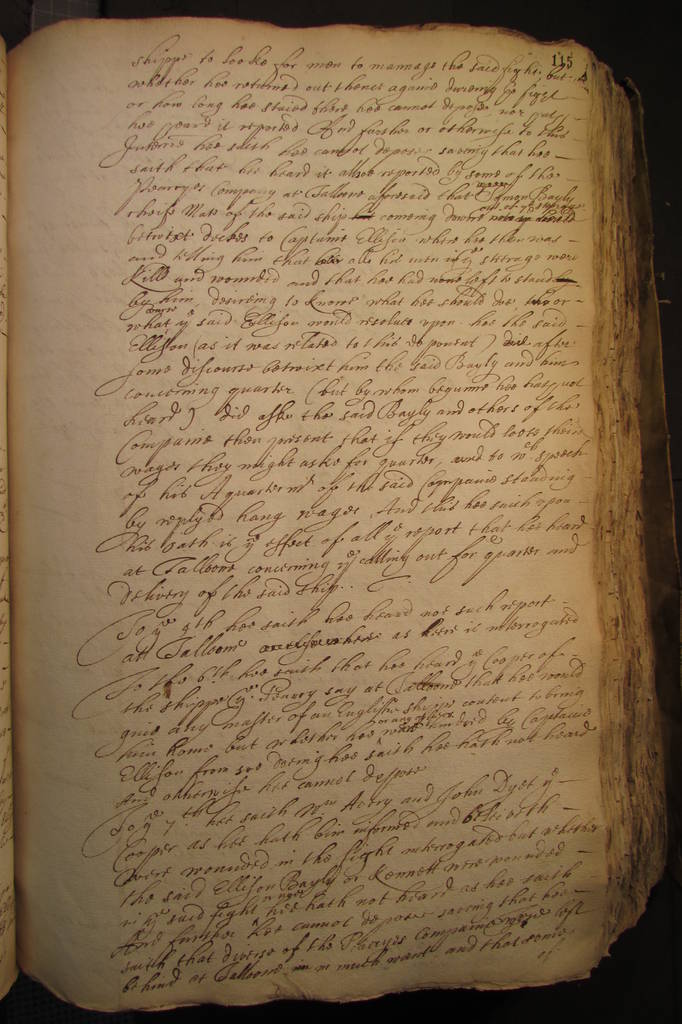 115
shippe to looke for men to mannage the said fight, but
whether hee returned out thence againe dureing ye fight
or how long hee staied there hee cannot depose, nor hath
hee heard it reported And further or otherwise to this
Interrie hee saith hee cannot depose saveing that hee
saith that hee heard it allsoe reported by some of the
Pearyes Company at Tallone aforesaid that Symon Bayly
cheife Mate of the said ship comeing downe
betwixt deckes to Captaine Ellison where hee then was
and telling him that all his men in ye steerage were
killd and wounded and that hee had none left to stand
by him, desireing to knowe what hee should doe, or
what ye said Ellison would resolve upon hee the said
Ellison (as it was related to this deponent) did after
some discourse betwixt him the said Bayly and him
concerning quarter (but by whom begunne hee hath not
heard) did aske the said Bayly and others of the
Companie then present that if they would loose their
wages they might aske for quarter, and to wch speech
of his A quarter mr of the said Companie standing
by replyed hang wages, And this hee saith upon
his oath is ye effect of all ye report that hee heard
at Tallone concerning ye calling out for quarter and
delivery of the said ship.
To ye 5th hee saith hee heard not such report
att Tallone as here is interrogated
To the 6th hee saith that hee heard ye Cooper of
the shippe ye Peary say at Tallone that hee would
give any master of an English shipp content to bring
him home but whether hee were hindered by Captaine
Ellison from soe doeing hee saith hee hath not heard
And otherwise hee cannot depose
To ye 7th hee saith Wm Avery and John Dyet ye
Cooper as hee hath bin informed and beleiveth
were wounded in the fight interrogated but whether
the said Ellison Bayly or Kennett were wounded
in ye said fight hee hath not heard as hee saith
And further hee cannot depose saveing that hee
saith that diverse of the Pearyes Companie were left
behind at Tallone in much want and that some
of